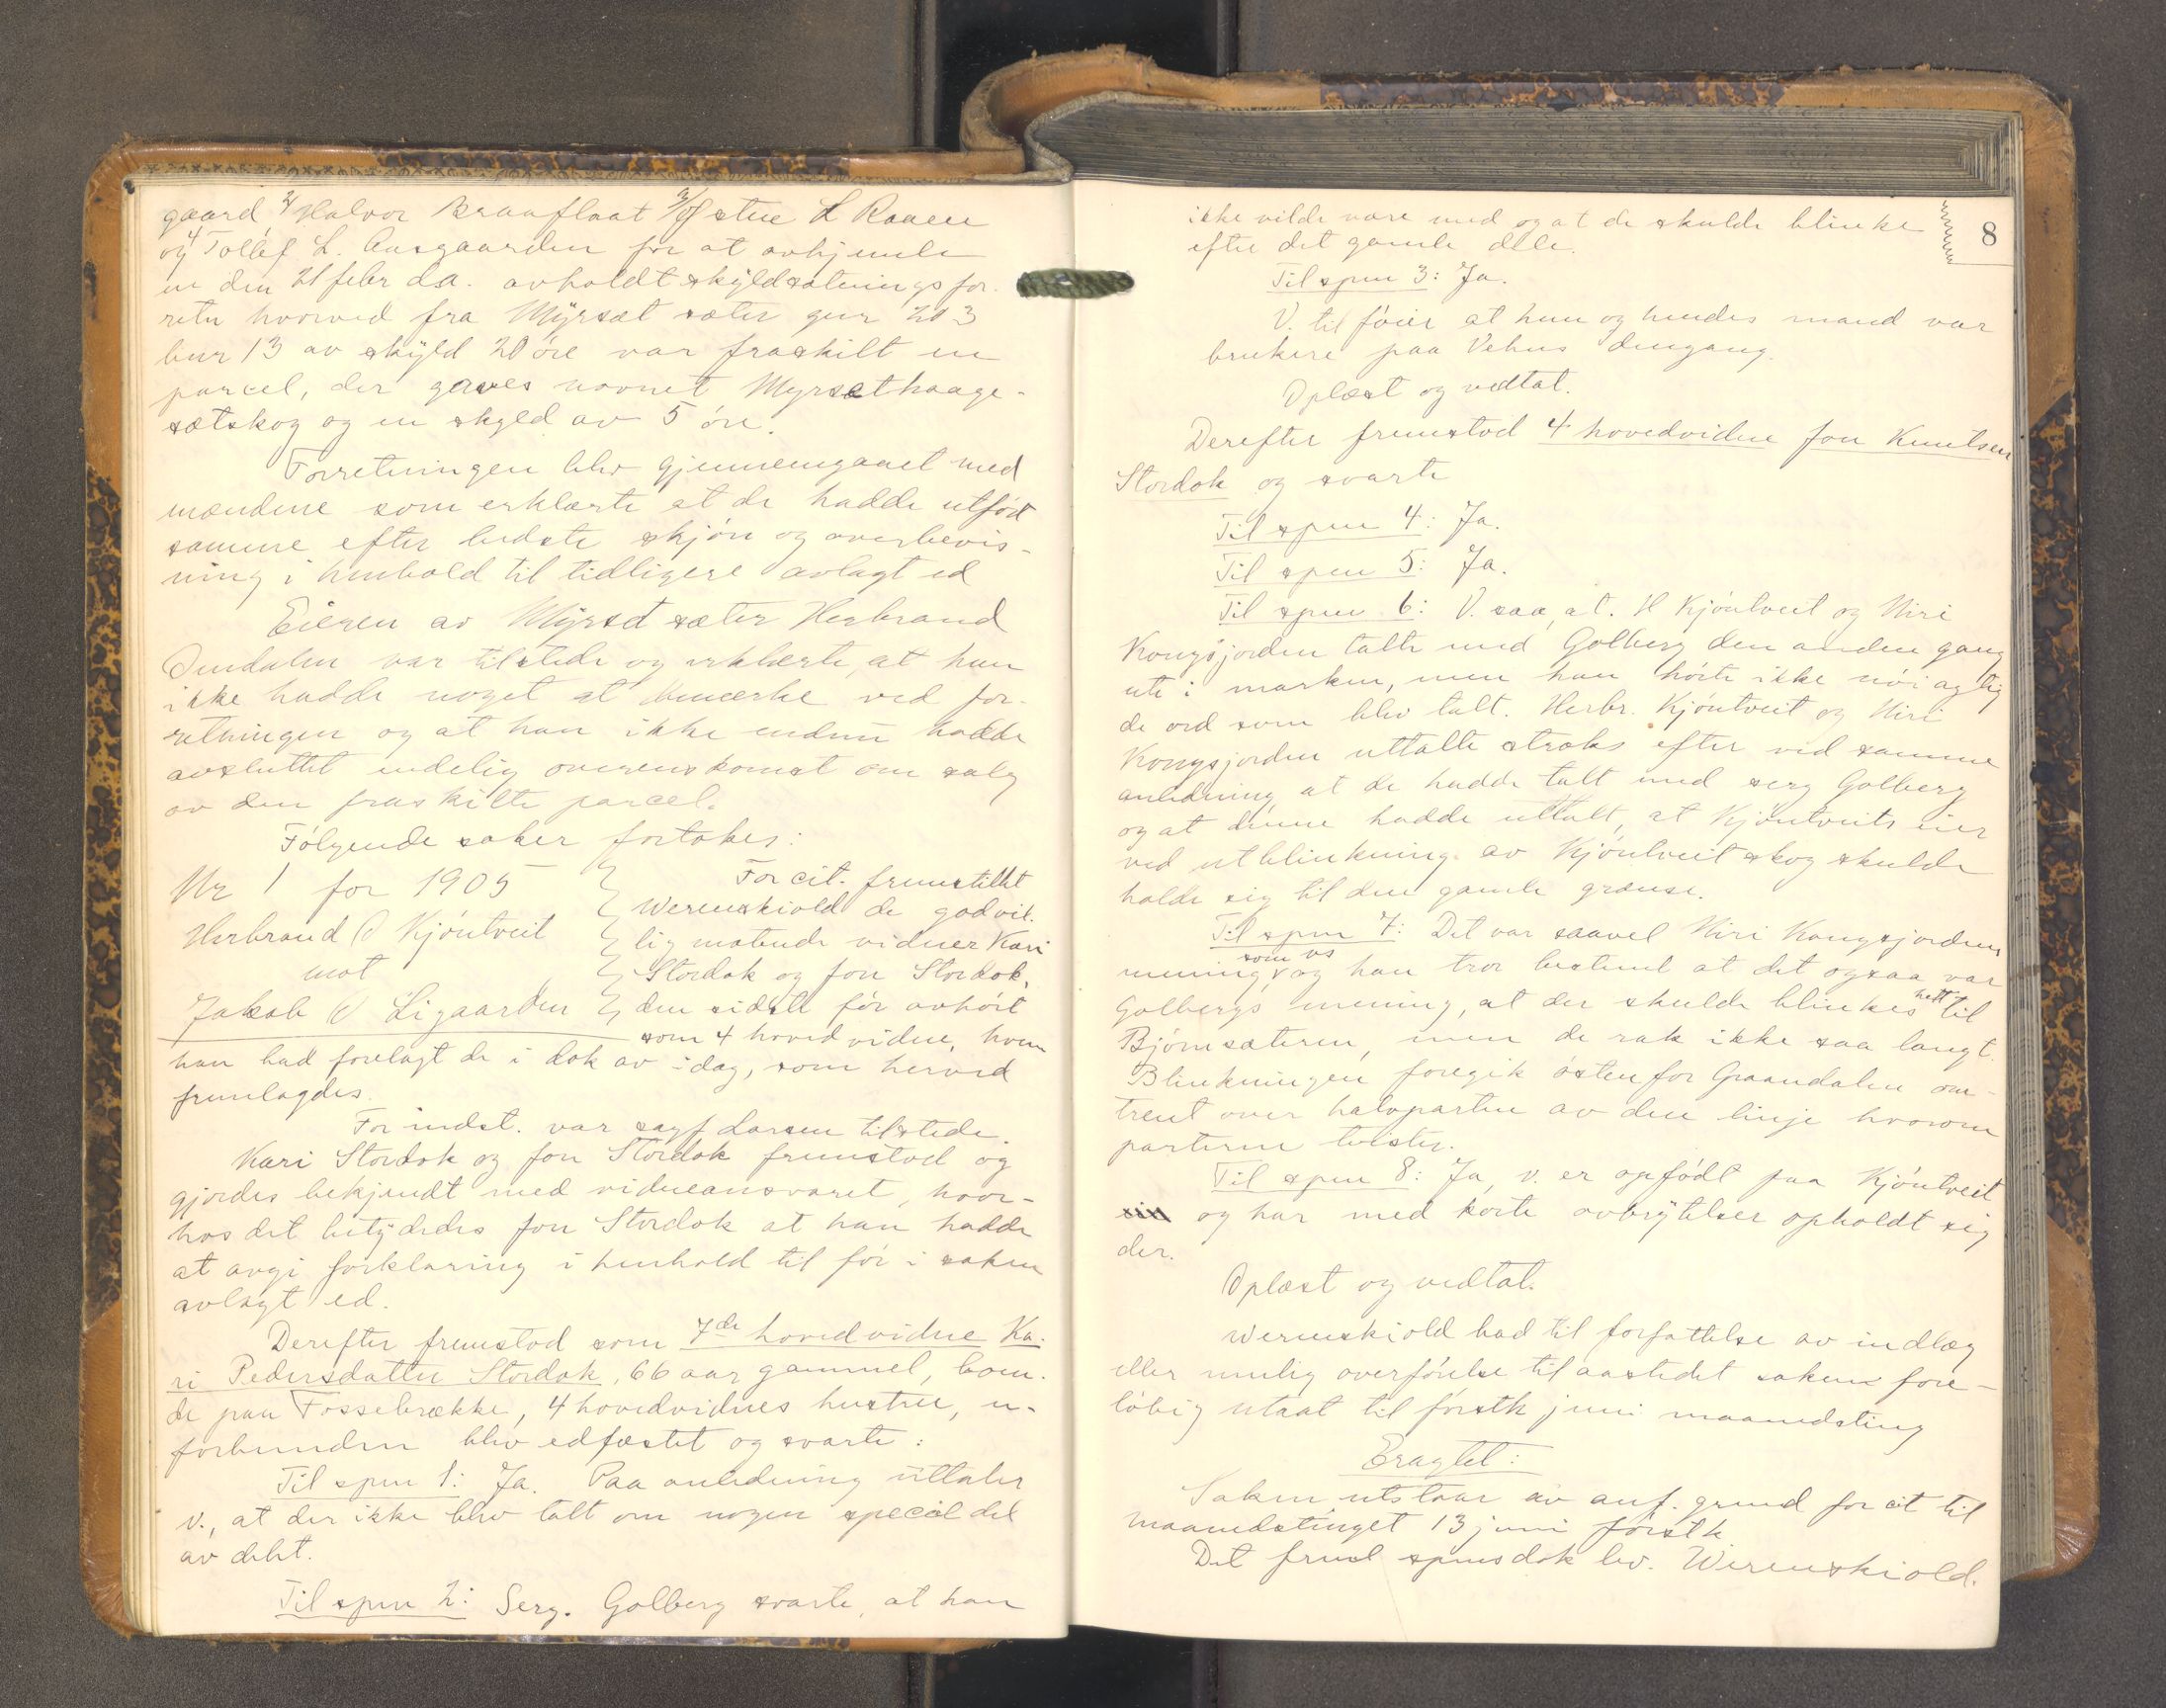 gaard 2/ Halvor Braaflaat 3/ Østen L Raaen
og 4 Tollef L. Aasgaarden for at avhjemle
en den 21 febr d.a. avholdt skyldsætningsfor.
retn hvorved fra Myrsæt sæter gnr 203
bnr 13 av skyld 20 øre var fraskilt en
parcel, der gaves navnet Myrsæthaage-
sætskog og en skyld av 5 øre.
Forretningen blev gjennemgaaet med
mændene som erklærte at de hadde utført
samme efter bedste skjøn og overbevis-
ning i henhold til tidligere avlagt ed
Eieren av Myrsæt sæter Herbrand
Omdalen var tilstede og erklærte, at han
ikke hadde noget at bemærke ved for-
retningen og at han ikke endnu hadde
avsluttet endelig overenskomst om salg
av den fraskilte parcel.
Følgende saker fortokes:
Nr 1 for 1905
Herbrand O Kjøntveit
mot
Jakob O Ligaarden
For cit. fremstillet
Werenskiold de godvil.
lig møtende vidner Kari
Stordok og Jon Stordok,
den sidste før avhørt
som 4 hovedvidne, hvem
han bad forelagt de i dok av idag, som herved
fremlagdes.
For indst. var sagf Larsen tilstede.
Kari Stordok og Jon Stordok fremstod og
gjordes bekjendt med vidneansvaret, hvor-
hos det betydedes Jon Stordok at han hadde
at avgi forklaring i henhold til før i saken
avlagt ed.
Derefter fremstod som 7de hovedvidne Ka-
ri Pedersdatter Stordok, 66 aar gammel, boen-
de paa Fossebrække, 4 hovedvidnes hustru, u-
forbunden blev edfæstet og svarte:
Til spm 1: Ja. Paa anledning uttaler
v., at der ikke blev talt om nogen speciel del
av delet.
Til spm 2: Serg. Golberg svarte, at han
8
ikke vilde være med og at de skulde blinke
efter det gamle dele.
Til spm 3: Ja.
V. tilføier at hun og hendes mand var
brukere paa Vehus dengang.
Oplæst og vedtat.
Derefter fremstod 4 hovedvidne Jon Knutsen
Stordok og svarte
Til spm 4: Ja.
Til spm 5: Ja.
Til spm 6: V. saa, at H Kjøntveit og Niri
Kongsjorden talte med Golberg den anden gang
ute i marken, men han hørte ikke nøiagtig
de ord som blev talt. Herbr. Kjøntveit og Niri
Kongsjorden uttalte straks efter ved samme
anledning at de hadde talt med serg Golberg
og at denne hadde uttalt, at Kjøntveits eier
ved utblinkning av Kjøntveit skog skulde
holde sig til den gamle grænse.
Til spm 7: Det var saavel Niri Kongsjordens
mening, som vs og han tror bestemt at det ogsaa var
Golbergs mening, at der skulde blinkes helt til
Bjørnsæteren, men de rak ikke saa langt.
Blinkningen foregik østenfor Graandalen om-
trent over halvparten av den linje hvorom
parterne tvistes.
Til spm 8: Ja, v. er opfødt paa Kjøntveit
og har med korte avbrytelser opholdt sig
der.
Oplæst og vedtat.
Werenskiold bad til forfattelse av indlæg
eller mulig overførelse til aastedet saken fore-
løbig utsat til førstk juni maanedsting
Eragtet:
Saken utstaar av anf. grund for cit til
maanedstinget 13 juni førstk
Det freml spmsdok lev. Werenskiold.